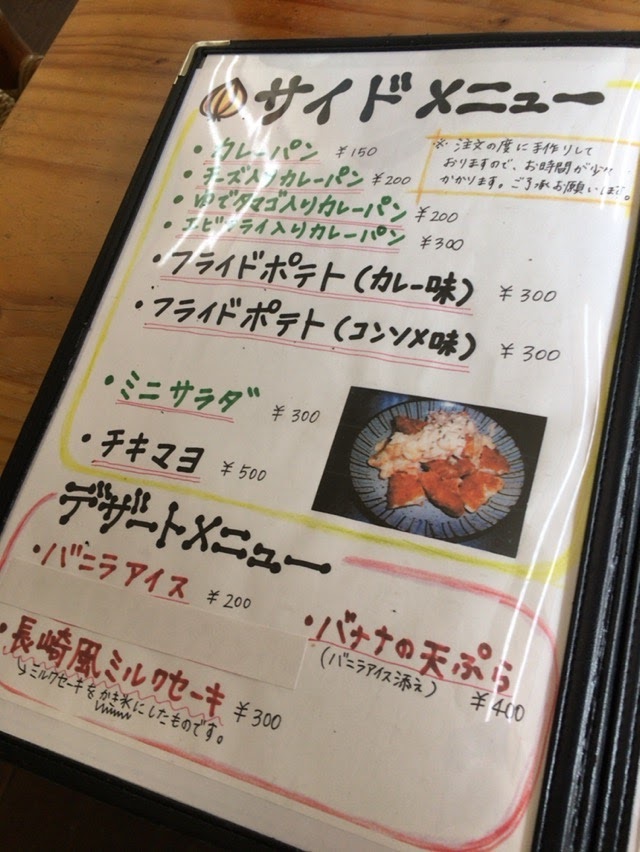 サイドメニュー
・カレーパン ¥150
・チーズ入りカレーパン ¥200
・ゆでタマゴ入りカレーパン ¥200
・エビフライ入りカレーパン ¥300
※注文の度に手作りして
おりますので、お時間が少々
かかります。ご了承お願いします。
・フライドポテト(カレー味) ¥300
・フライドポテト(コンソメ味) ¥300
・ミニサラダ ¥300
・チキマヨ ¥500
デザートメニュー
・バニラアイス ¥200
・長崎風ミルクセーキ ¥300
ミルクセーキをかき氷にしたものです。
・バナナの天ぷら
(バニラアイス添え)
¥400